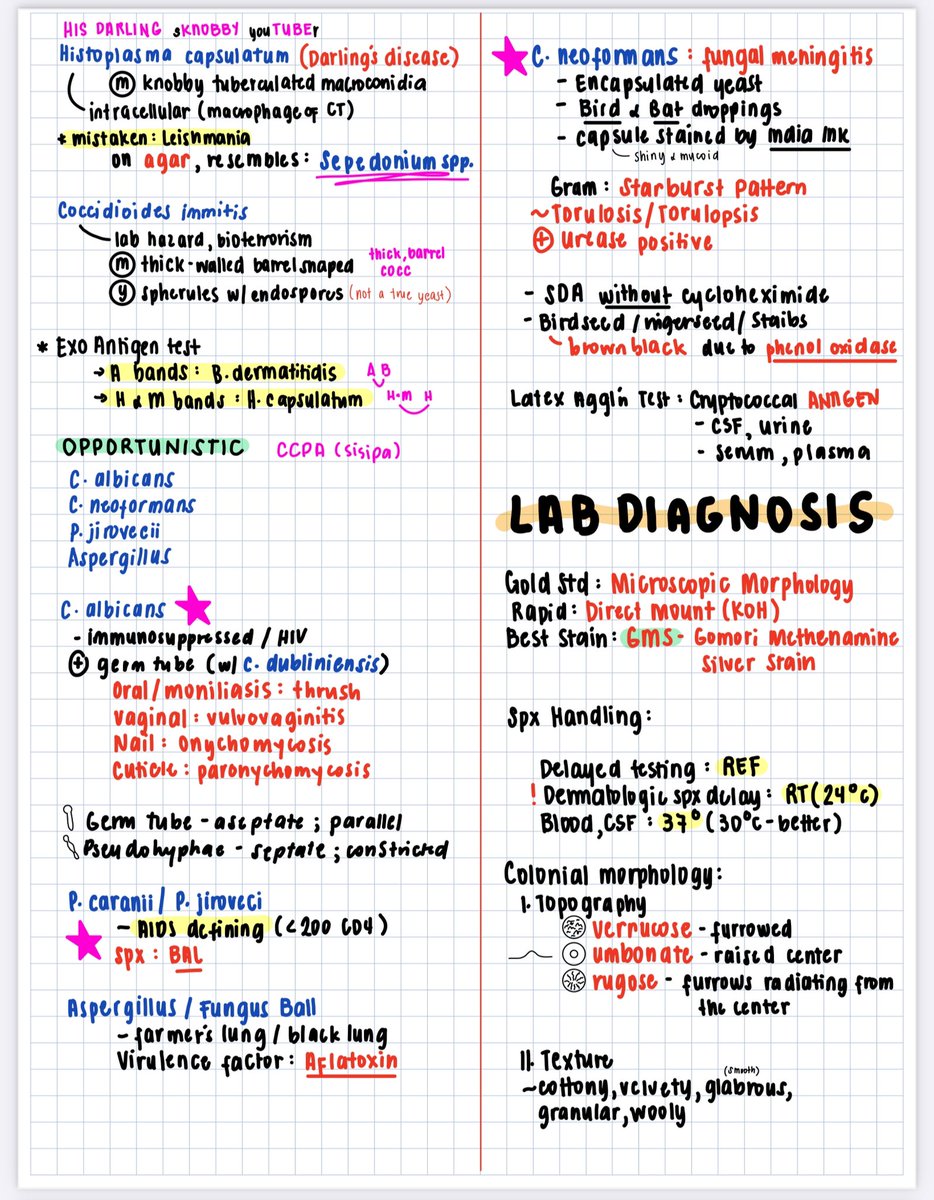 HIS DARLING sKNOBBY youTUBEr
Histoplasma capsulatum (Darling's disease)
m knobby tuberculated macroconidia
intracellular (macrophage of CT)
* mistaken: Leishmania
on agar, resembles: Sepedonium spp.
Coccidioides immitis
lab hazard, bioterrorism
m thick-walled barrel shaped
thick, barrel
cocc
y spherules w/ endospores (not a true yeast)
* Exo Antigen test
→ A bands: B. dermatitidis
A B
→ H & M bands: H. capsulatum
H·M H
OPPORTUNISTIC CCPA (sisipa)
C. albicans
C. neoformans
P. jirovecii
Aspergillus
C. albicans
- immunosuppressed / HIV
+ germ tube (w/ C. dubliniensis)
Oral/moniliasis: thrush
Vaginal: vulvovaginitis
Nail: Onychomycosis
Cuticle: paronychomycosis
Germ tube - aseptate; parallel
Pseudohyphae - septate; constricted
P. caranii / P. jiroveci
- AIDS defining (<200 CD4)
spx: BAL
Aspergillus / Fungus Ball
- farmer's lung / black lung
Virulence factor: Aflatoxin
C. neoformans: fungal meningitis
- Encapsulated yeast
- Bird & Bat droppings
- capsule stained by India Ink
shiny & mucoid
Gram: Starburst pattern
~Torulosis/Torulopsis
+ urease positive
- SDA without cycloheximide
- Birdseed/nigerseed/Staibs
brown black due to phenol oxidase
Latex Aggl'n Test: Cryptococcal ANTIGEN
- CSF, urine
- serum, plasma
LAB DIAGNOSIS
Gold Std: Microscopic Morphology
Rapid: Direct Mount (KOH)
Best Stain: GMS - Gomori Methenamine
Silver Stain
Spx Handling:
Delayed testing: REF
! Dermatologic spx delay: RT (24°C)
Blood, CSF: 37° (30°C - better)
Colonial morphology:
I. Topography
verrucose - furrowed
umbonate - raised center
rugose - furrows radiating from
the center
II. Texture
(smooth)
~cottony, velvety, glabrous,
granular, wooly